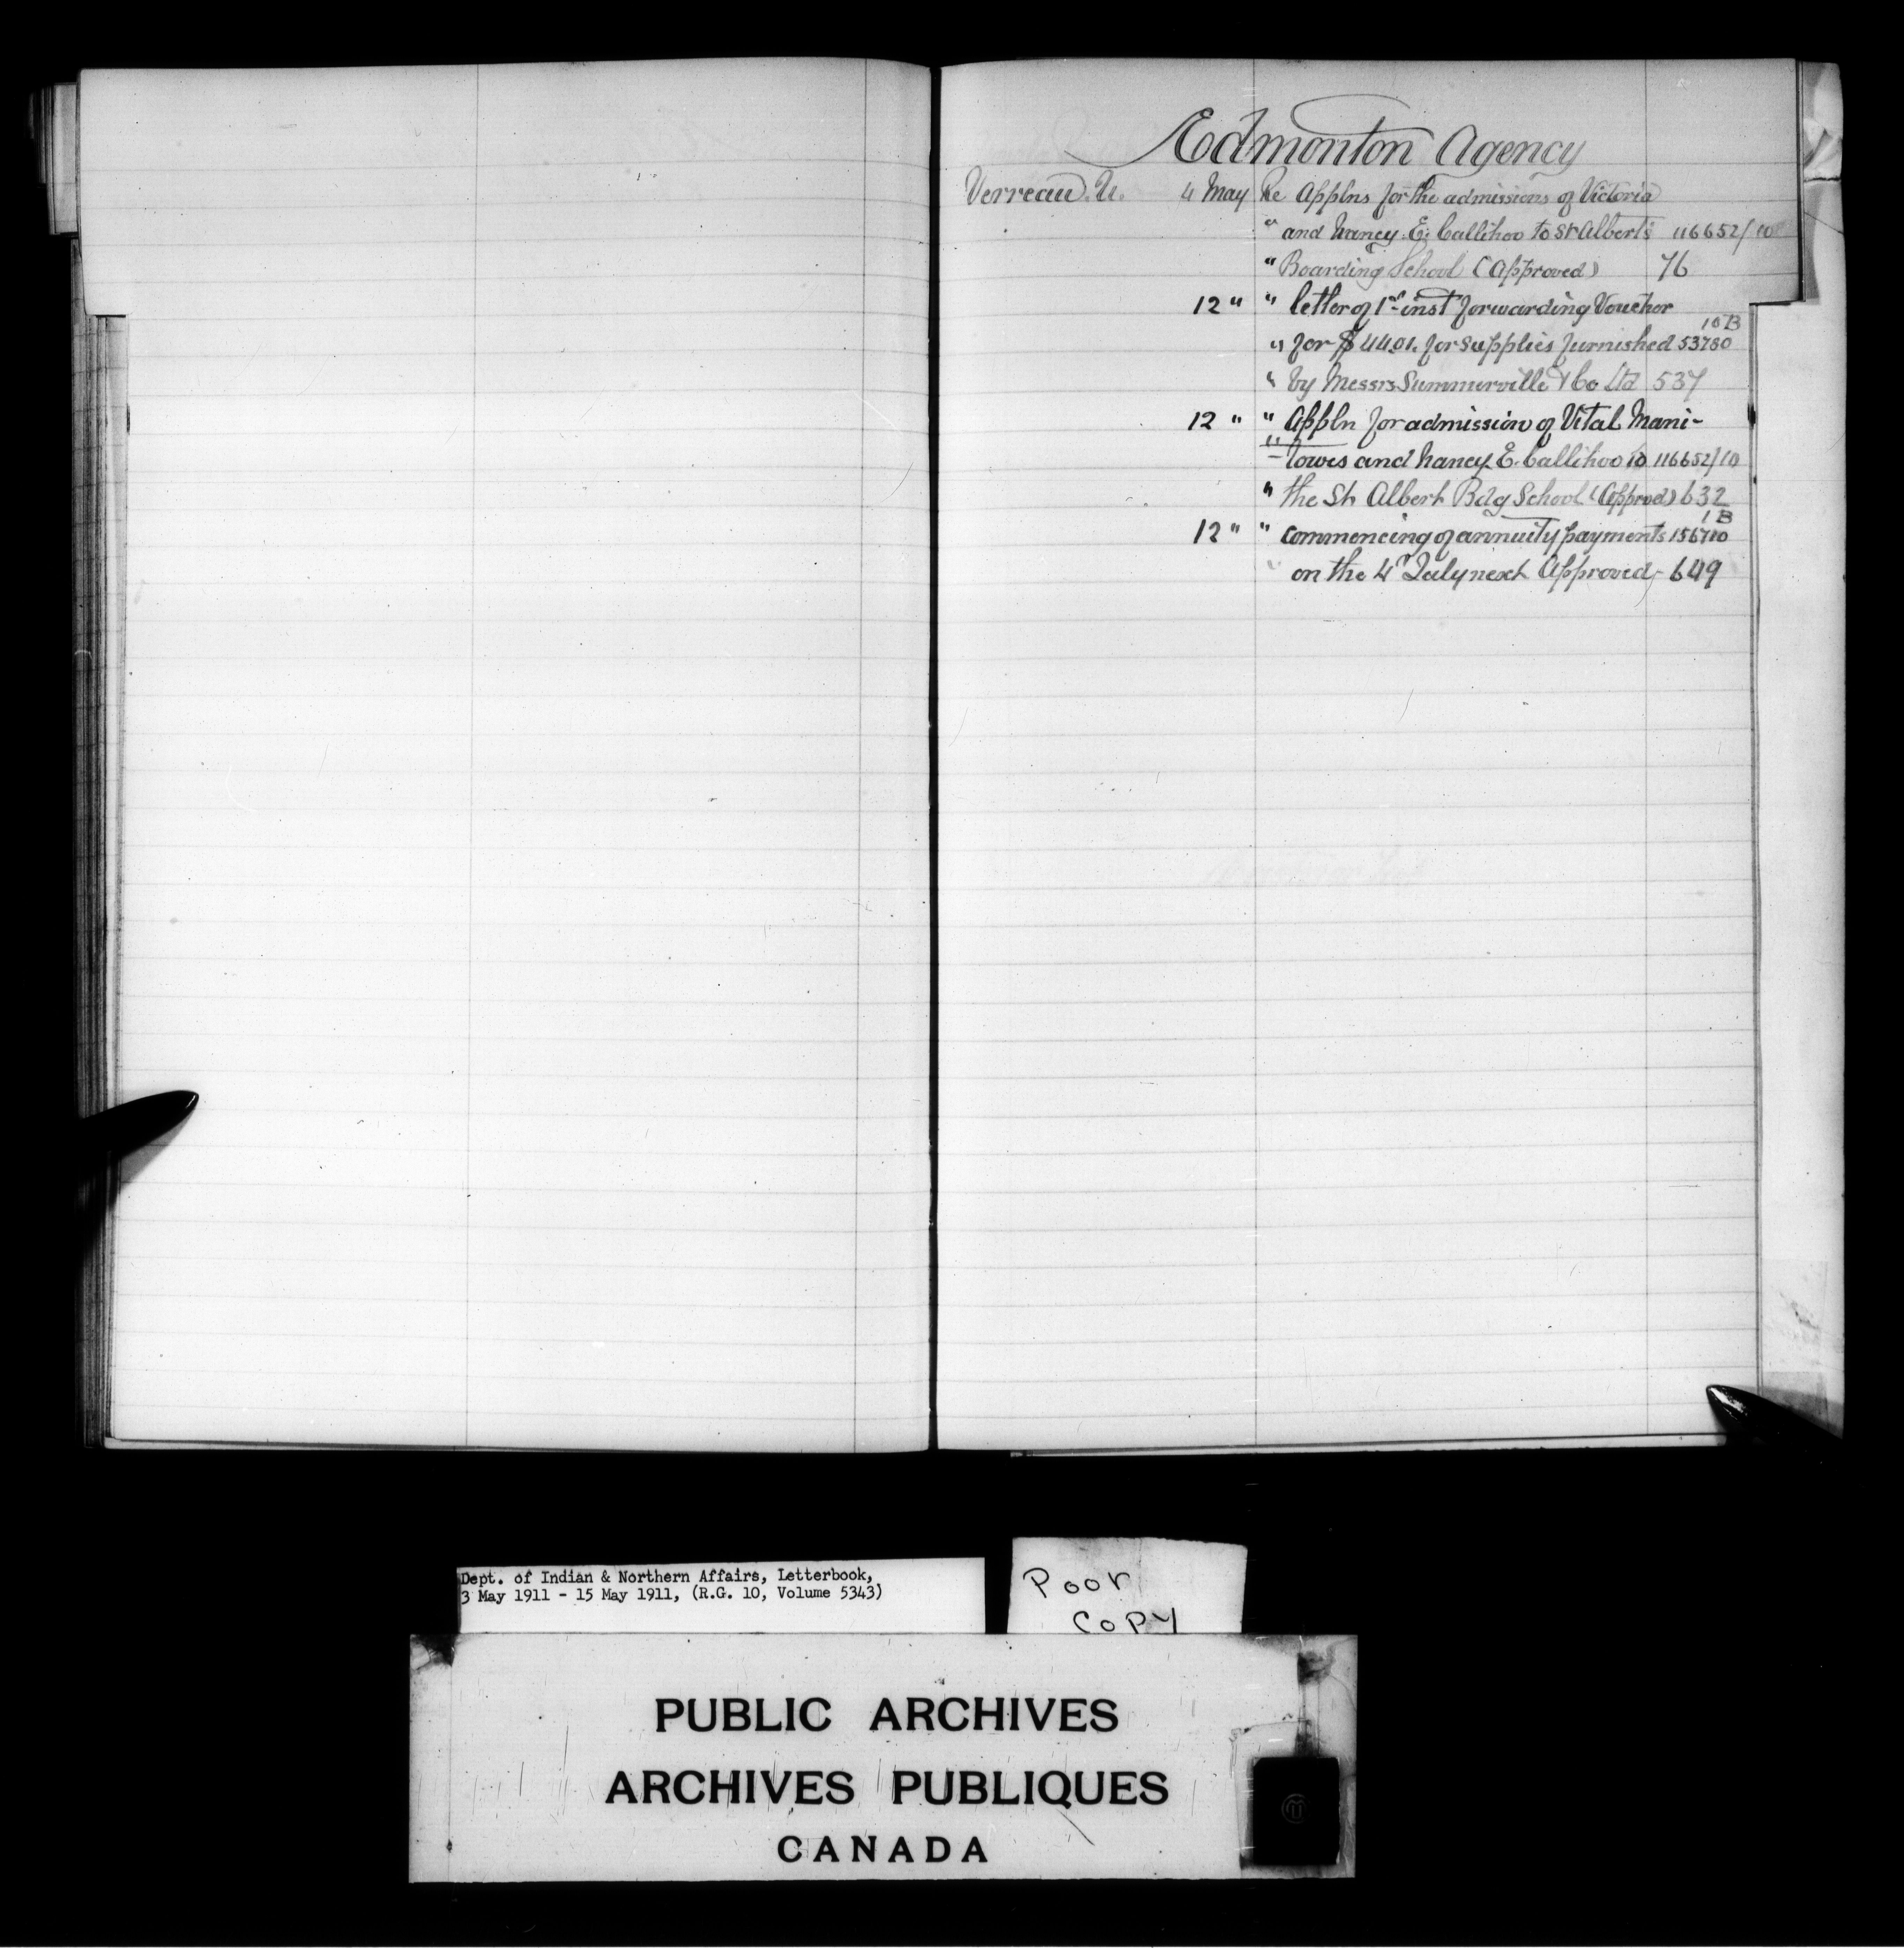 Edmonton Agency
Verreau. U. 4 May Re Applns for the admissions of Victoria
" and Nancy. E. Callihoo to St Albert's 116652/10
" Boarding School (Approved) 76
12 " " letter of 1st inst forwarding Voucher
10B
" for $44.01. for supplies furnished 53780
" by Messrs Summerville & Co Ltd 537
12 " " Appln for admission of Vital Mani-
" -towis and Nancy E. Callihoo to 116652/10
" the St Albert Bdg School (Approved) 632
1B
12 " " commencing of annuity payments 156710
" on the 4th July next Approved, 649
Dept. of Indian & Northern Affairs, Letterbook,
3 May 1911 - 15 May 1911, (R.G. 10, Volume 5343)
Poor
Copy
PUBLIC ARCHIVES
ARCHIVES PUBLIQUES
CANADA